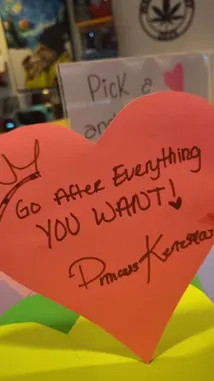 Pick a
and
Go After Everything
YOU WANT!
Princess